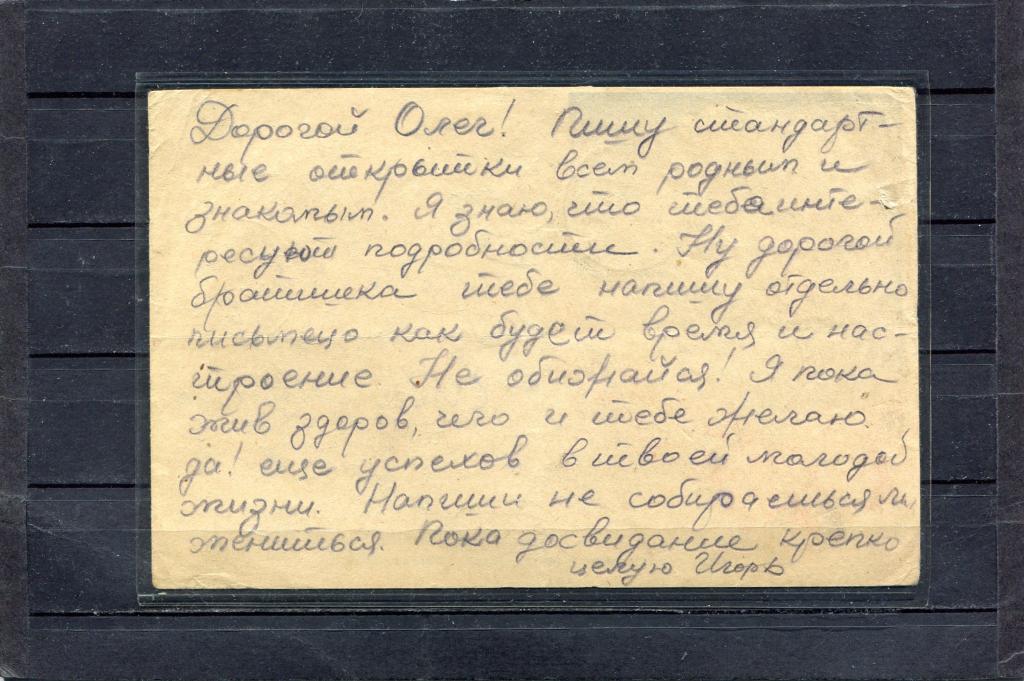 Дорогой Олег! Пишу стандарт-
ные открытки всем родным и
знакомым. Я знаю, что тебя инте-
ресуют подробности. Ну дорогой
братишка тебе напишу отдельно
письмецо как будет время и нас-
троение. Не обижайся! Я пока
жив здоров, чего и тебе желаю.
да! еще успехов в твоей молодой
жизни. Напиши не собираешься ли
жениться. Пока досвидание крепко
целую Игорь